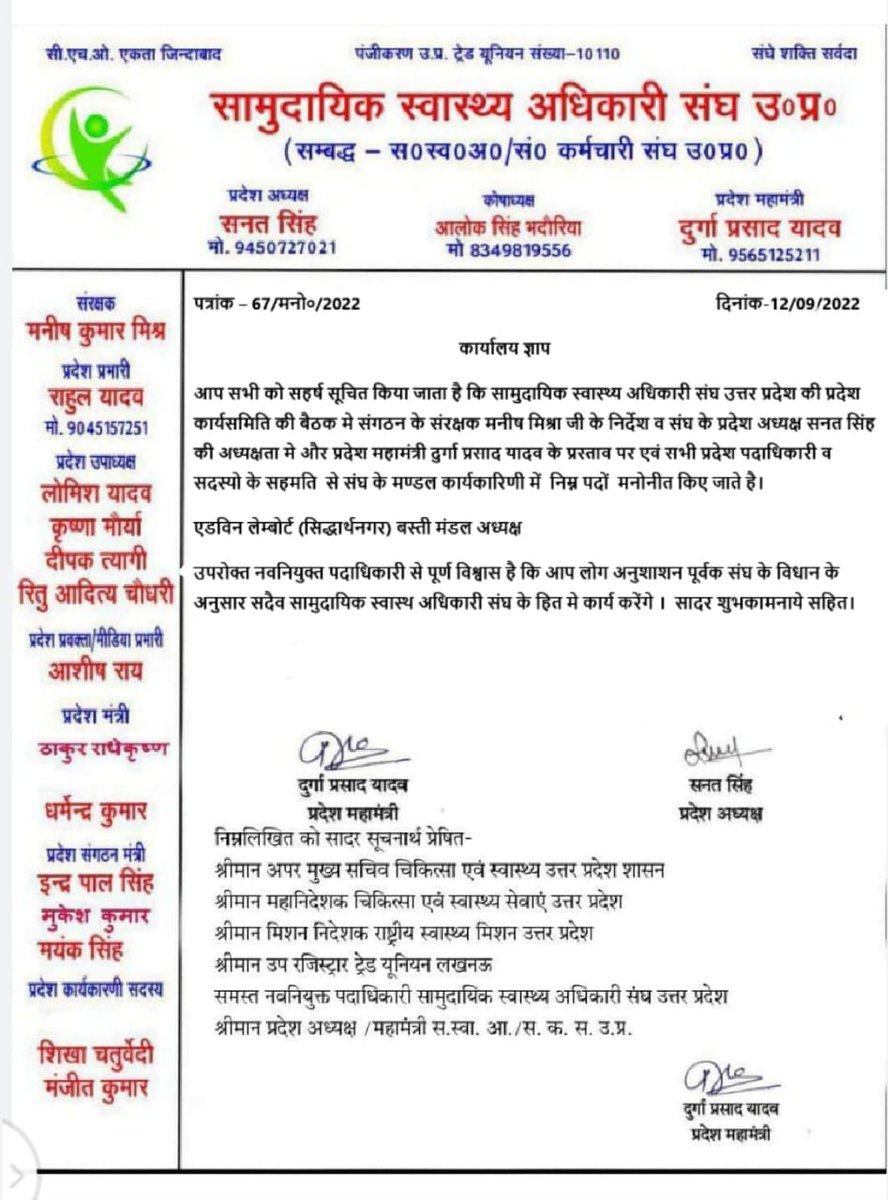 सी.एच.ओ. एकता जिन्दाबाद
पंजीकरण उ.प्र. ट्रेड यूनियन संख्या–10110
संघे शक्ति सर्वदा
सामुदायिक स्वास्थ्य अधिकारी संघ उ०प्र०
(सम्बद्ध – स०स्व०अ०/सं० कर्मचारी संघ उ०प्र०)
प्रदेश अध्यक्ष
सनत सिंह
मो. 9450727021
कोषाध्यक्ष
आलोक सिंह भदौरिया
मो 8349819556
प्रदेश महामंत्री
दुर्गा प्रसाद यादव
मो. 9565125211
संरक्षक
मनीष कुमार मिश्र
प्रदेश प्रभारी
राहुल यादव
मो. 9045157251
प्रदेश उपाध्यक्ष
लोमिश यादव
कृष्णा मौर्या
दीपक त्यागी
रितु आदित्य चौधरी
प्रदेश प्रवक्ता/मीडिया प्रभारी
आशीष राय
प्रदेश मंत्री
ठाकुर राधेकृष्ण
धर्मेन्द्र कुमार
प्रदेश संगठन मंत्री
इन्द्र पाल सिंह
मुकेश कुमार
मयंक सिंह
प्रदेश कार्यकारणी सदस्य
शिखा चतुर्वेदी
मंजीत कुमार
पत्रांक – 67/मनो०/2022
दिनांक-12/09/2022
कार्यालय ज्ञाप
आप सभी को सहर्ष सूचित किया जाता है कि सामुदायिक स्वास्थ्य अधिकारी संघ उत्तर प्रदेश की प्रदेश
कार्यसमिति की बैठक मे संगठन के संरक्षक मनीष मिश्रा जी के निर्देश व संघ के प्रदेश अध्यक्ष सनत सिंह
की अध्यक्षता मे और प्रदेश महामंत्री दुर्गा प्रसाद यादव के प्रस्ताव पर एवं सभी प्रदेश पदाधिकारी व
सदस्यो के सहमति से संघ के मण्डल कार्यकारिणी में निम्न पदों मनोनीत किए जाते है।
एडविन लेम्बोर्ट (सिद्धार्थनगर) बस्ती मंडल अध्यक्ष
उपरोक्त नवनियुक्त पदाधिकारी से पूर्ण विश्वास है कि आप लोग अनुशाशन पूर्वक संघ के विधान के
अनुसार सदैव सामुदायिक स्वास्थ अधिकारी संघ के हित मे कार्य करेंगे। सादर शुभकामनाये सहित।
दुर्गा प्रसाद यादव
प्रदेश महामंत्री
सनत सिंह
प्रदेश अध्यक्ष
निम्नलिखित को सादर सूचनार्थ प्रेषित-
श्रीमान अपर मुख्य सचिव चिकित्सा एवं स्वास्थ्य उत्तर प्रदेश शासन
श्रीमान महानिदेशक चिकित्सा एवं स्वास्थ्य सेवाएं उत्तर प्रदेश
श्रीमान मिशन निदेशक राष्ट्रीय स्वास्थ्य मिशन उत्तर प्रदेश
श्रीमान उप रजिस्ट्रार ट्रेड यूनियन लखनऊ
समस्त नवनियुक्त पदाधिकारी सामुदायिक स्वास्थ्य अधिकारी संघ उत्तर प्रदेश
श्रीमान प्रदेश अध्यक्ष /महामंत्री स.स्वा. आ./स. क. स. उ.प्र.
दुर्गा प्रसाद यादव
प्रदेश महामंत्री